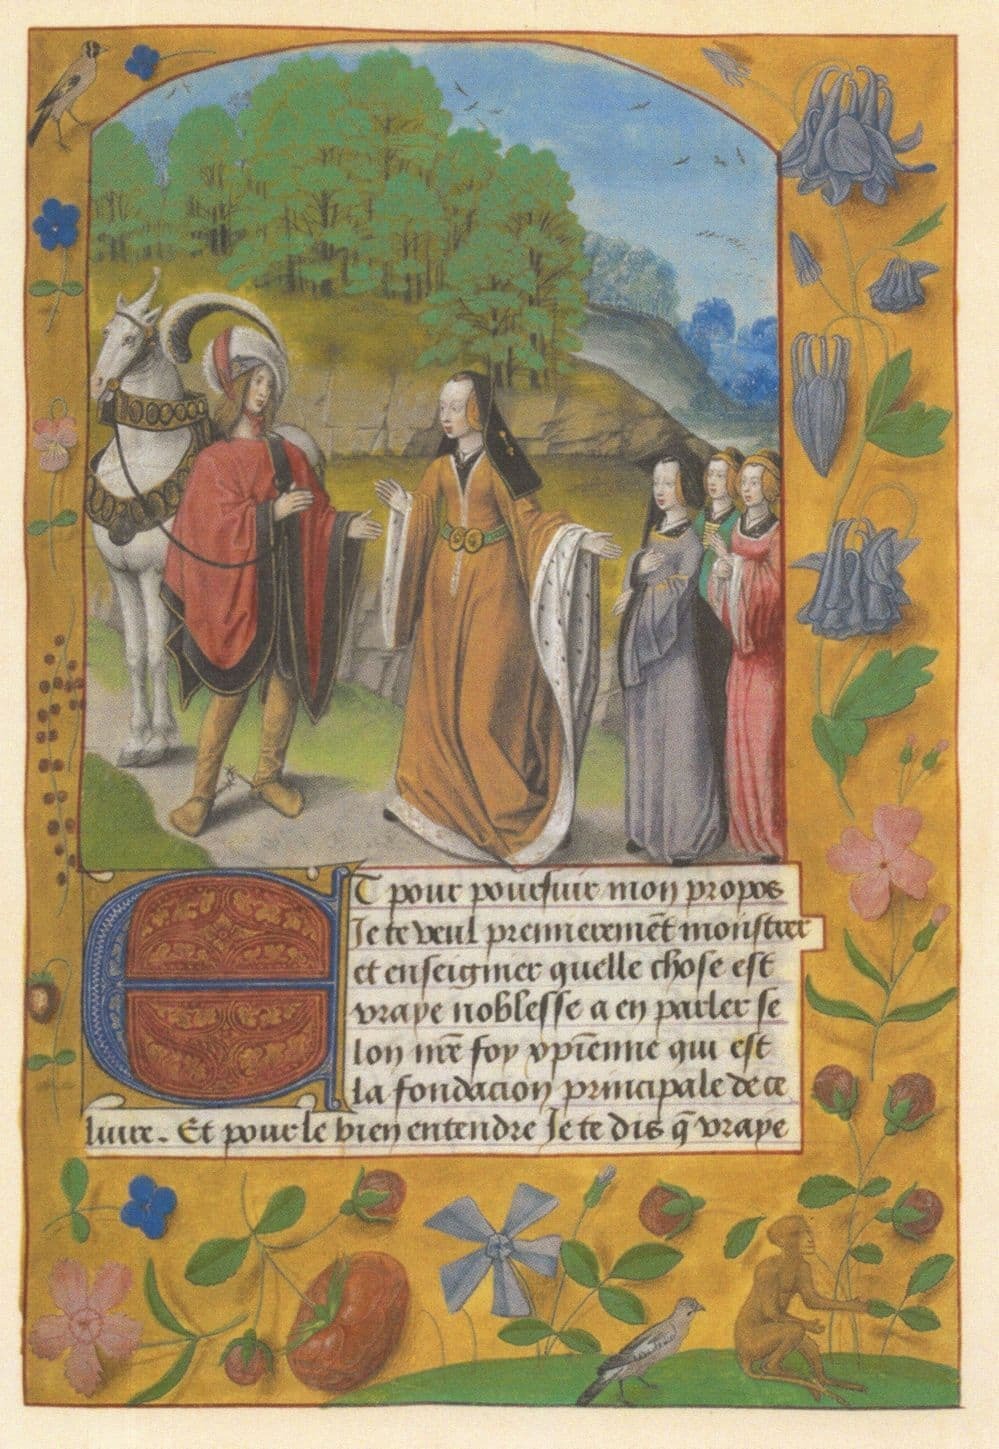 ET pour poursuir mon propos
Je te veul premierement monstrer
et enseignier quelle chose est
vraye noblesse a en parler se
lon nr̄e foy xp̄ienne qui est
la fondacion principale de ce
liure. Et pour le bien entendre Je te dis q̄ vraye